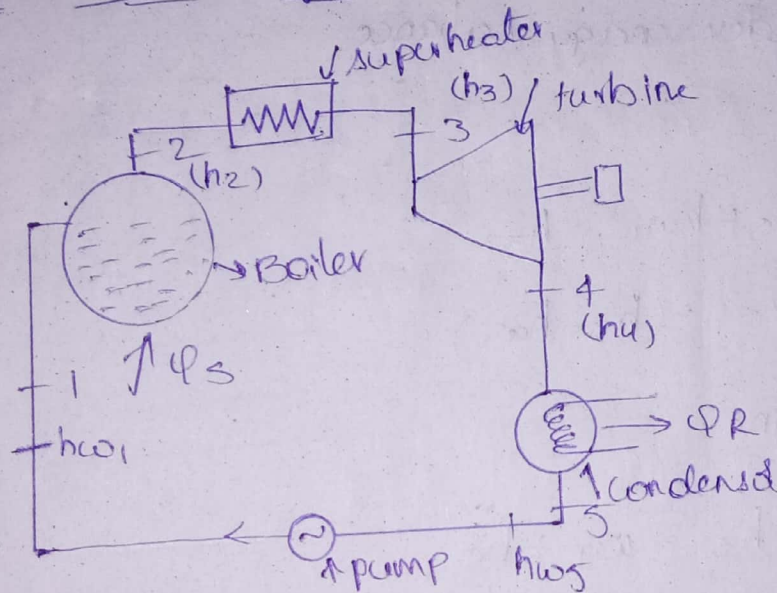 superheater
(h3)
turbine
2
(h2)
3
Boiler
4
(h4)
1
φs
hw1
φR
condensd
5
pump
hw5